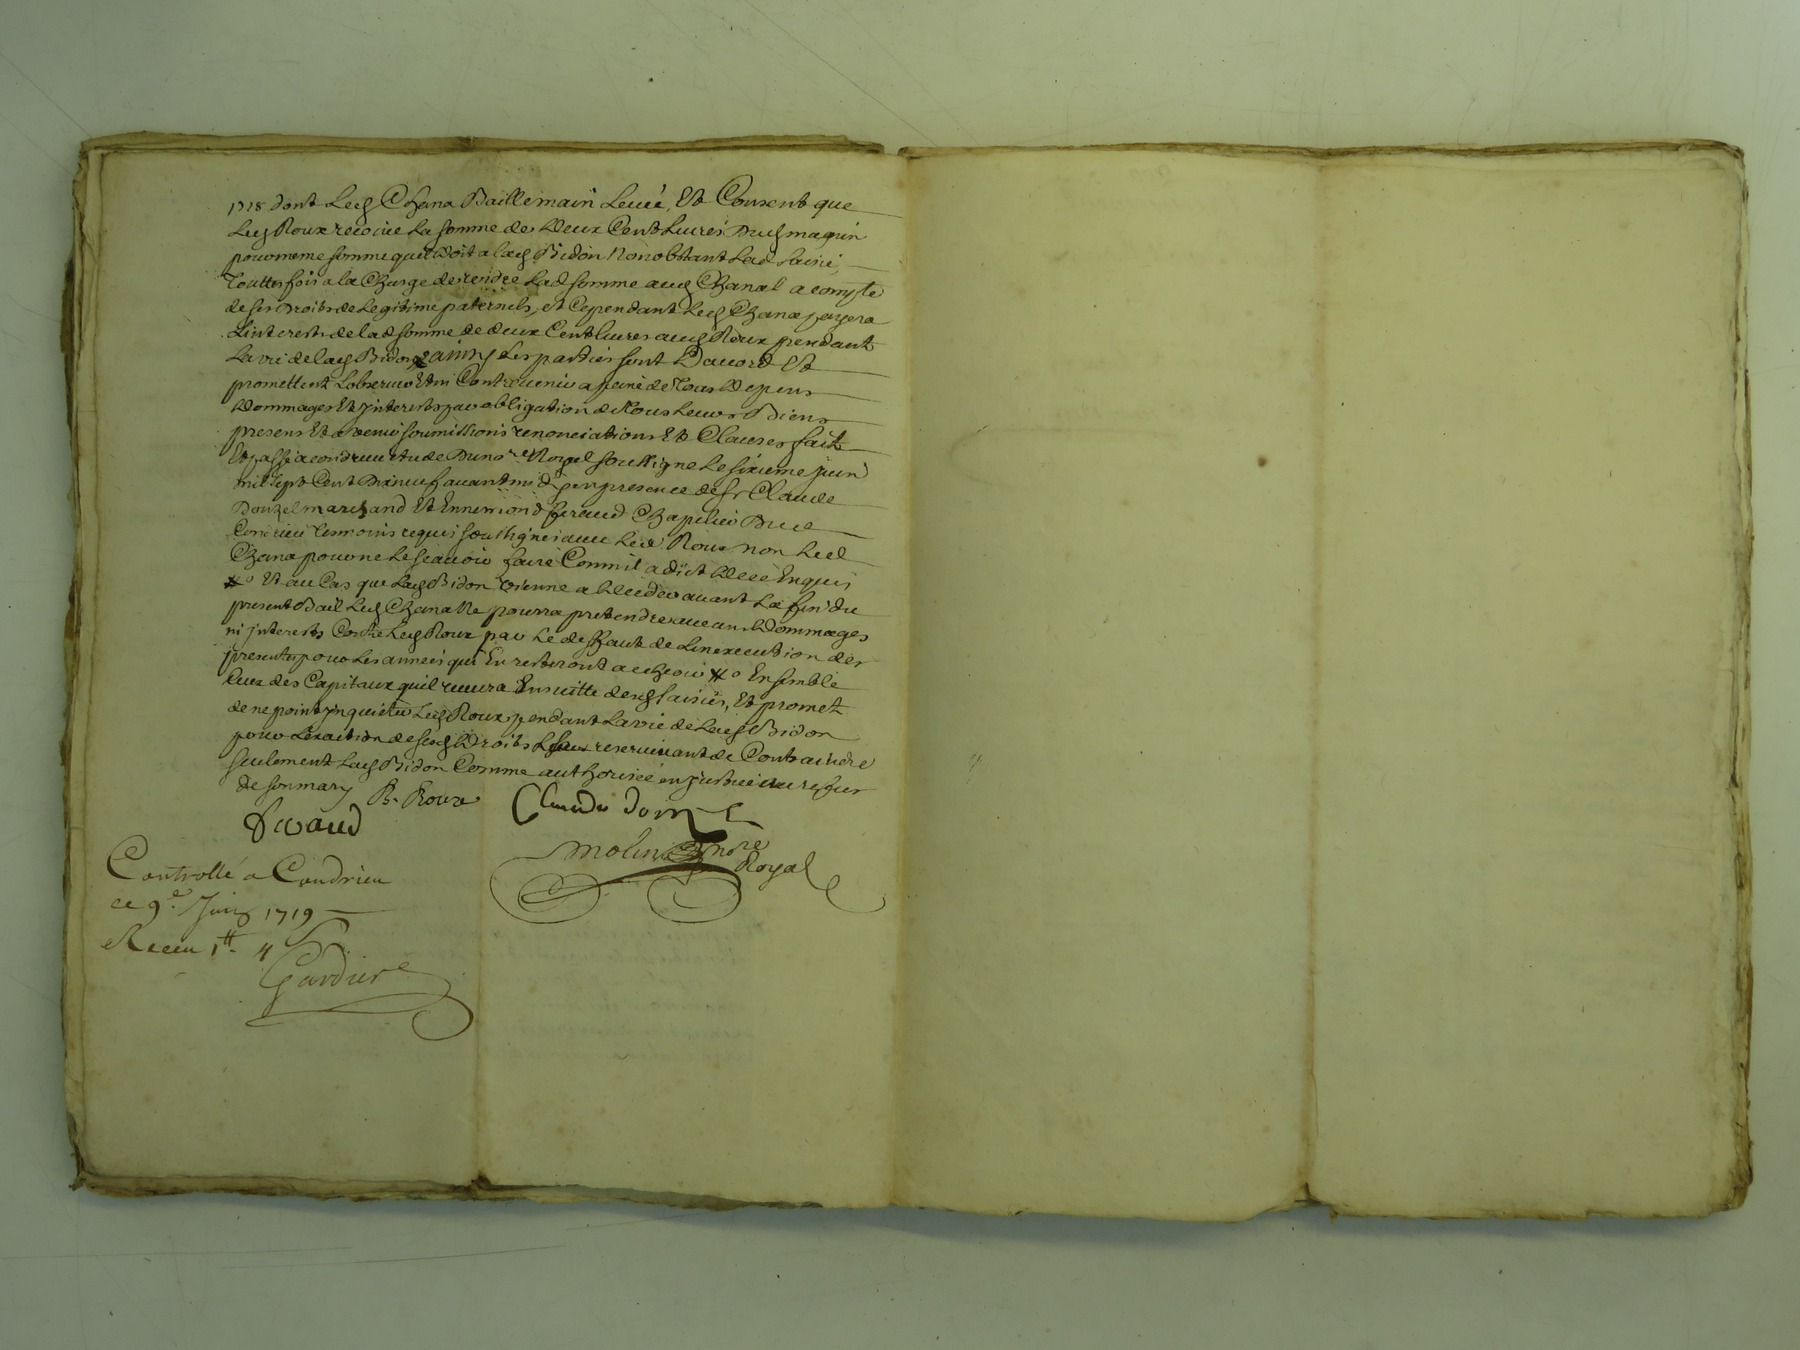 1718 dont Led Chana Baille main Leveé, Et Consent que
Led Roux recoive La somme de deux Cent Livres Dud maquin
pour meme somme quil doit a lad Bidon Nonobstant Lad saisie
Touttes fois a la Charge de rendre Lad somme aud Chanal a compte
de ses droits de Legitime paternels, et Cependant Led Chana payera
Linterests de lad somme de deux Cent livres aud Roux pendant
La vie de lad Bidon ainsy Les parties sont Dacord Et
promettent Lobserver Et ni Contrevenir a peine de Tous Depens
Dommages Et Interests par obligation de Tous Leurs Biens
presens Et avenir soumissions renonciations Et Clauses fait
Et passé a condrieu etude Du nore Royal soussigne Le sixieme juin
mil sept Cent Dixneuf avant midy en presence de sr Claude
Donzel marchand Et Ennemond feraud Chapelier Dud
Condrieu Tesmoins requis soussignés avec Led Roux non Led
Chana pour ne Le scavoir faire Comm il a dict deüe Enquis
Et au Cas que Lad Bidon Vienne a deceder avant La fin du
present Bail Led Chana Ne pourra pretendre aucuns Dommages
ni interests Contre Led Roux par Le deffaut de Linexecution des
presentes pour Les années qui En resteront a echeoir Ensemble
Ceux des Capitaux quil recevra Ensuitte desd saisies, Et promet
de ne point Inquieter Led Roux pendant La vie de Lad Bidon
pour Lexaction de sesd Droits reservant de Contraindre
seulement Lad Bidon Comme authorisée en justice au refus
de son mary B. Roux Claude donzel
feraud
molin nore
Royal
Controllé a Condrieu
ce 9e Juin 1719
Receu 1tt 4 s
Gardier